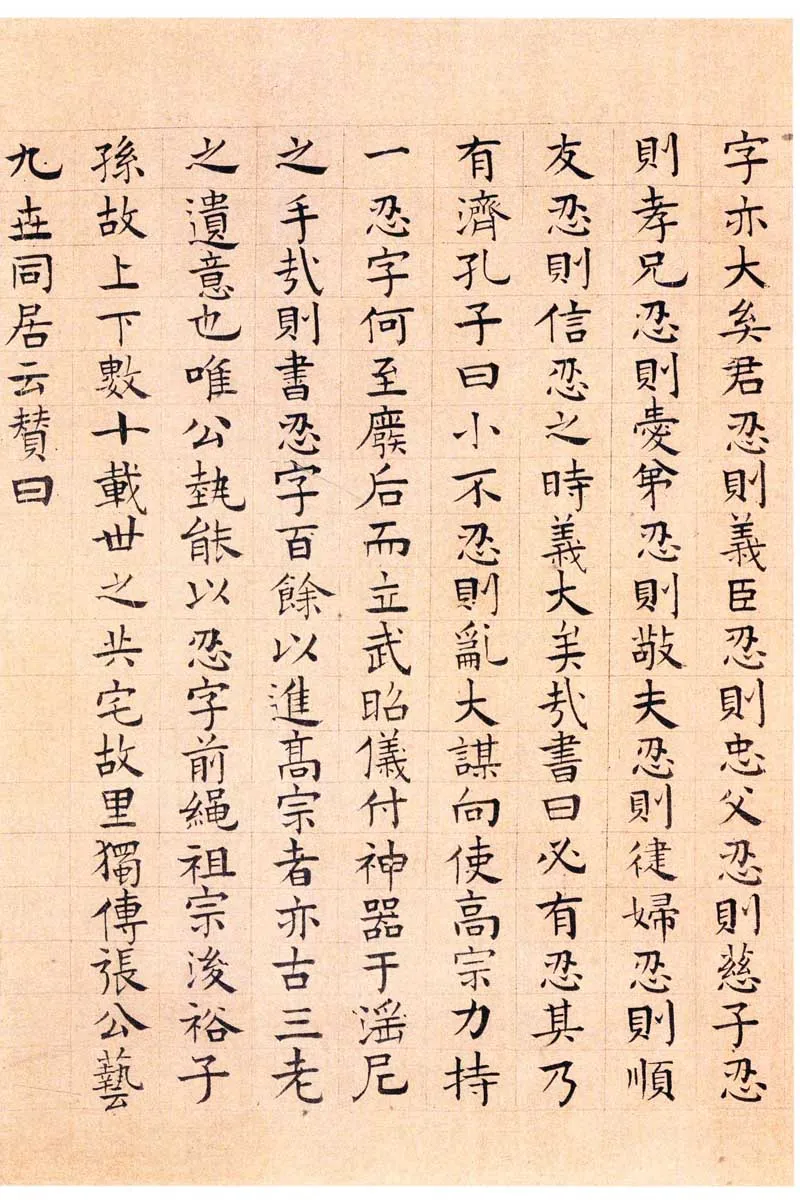 字亦大矣君忍則義臣忍則忠父忍則慈子忍
則孝兄忍則爱弟忍則敬夫忍則徤婦忍則順
友忍則信忍之時義大矣哉書曰必有忍其乃
有濟孔子曰小不忍則亂大謀向使高宗力持
一忍字何至廢后而立武昭儀付神器于滛尼
之手哉則書忍字百餘以進髙宗者亦古三老
之遺意也唯公執能以忍字前繩祖宗浚裕子
孫故上下數十載世之共宅故里獨傳張公藝
九世同居云賛曰